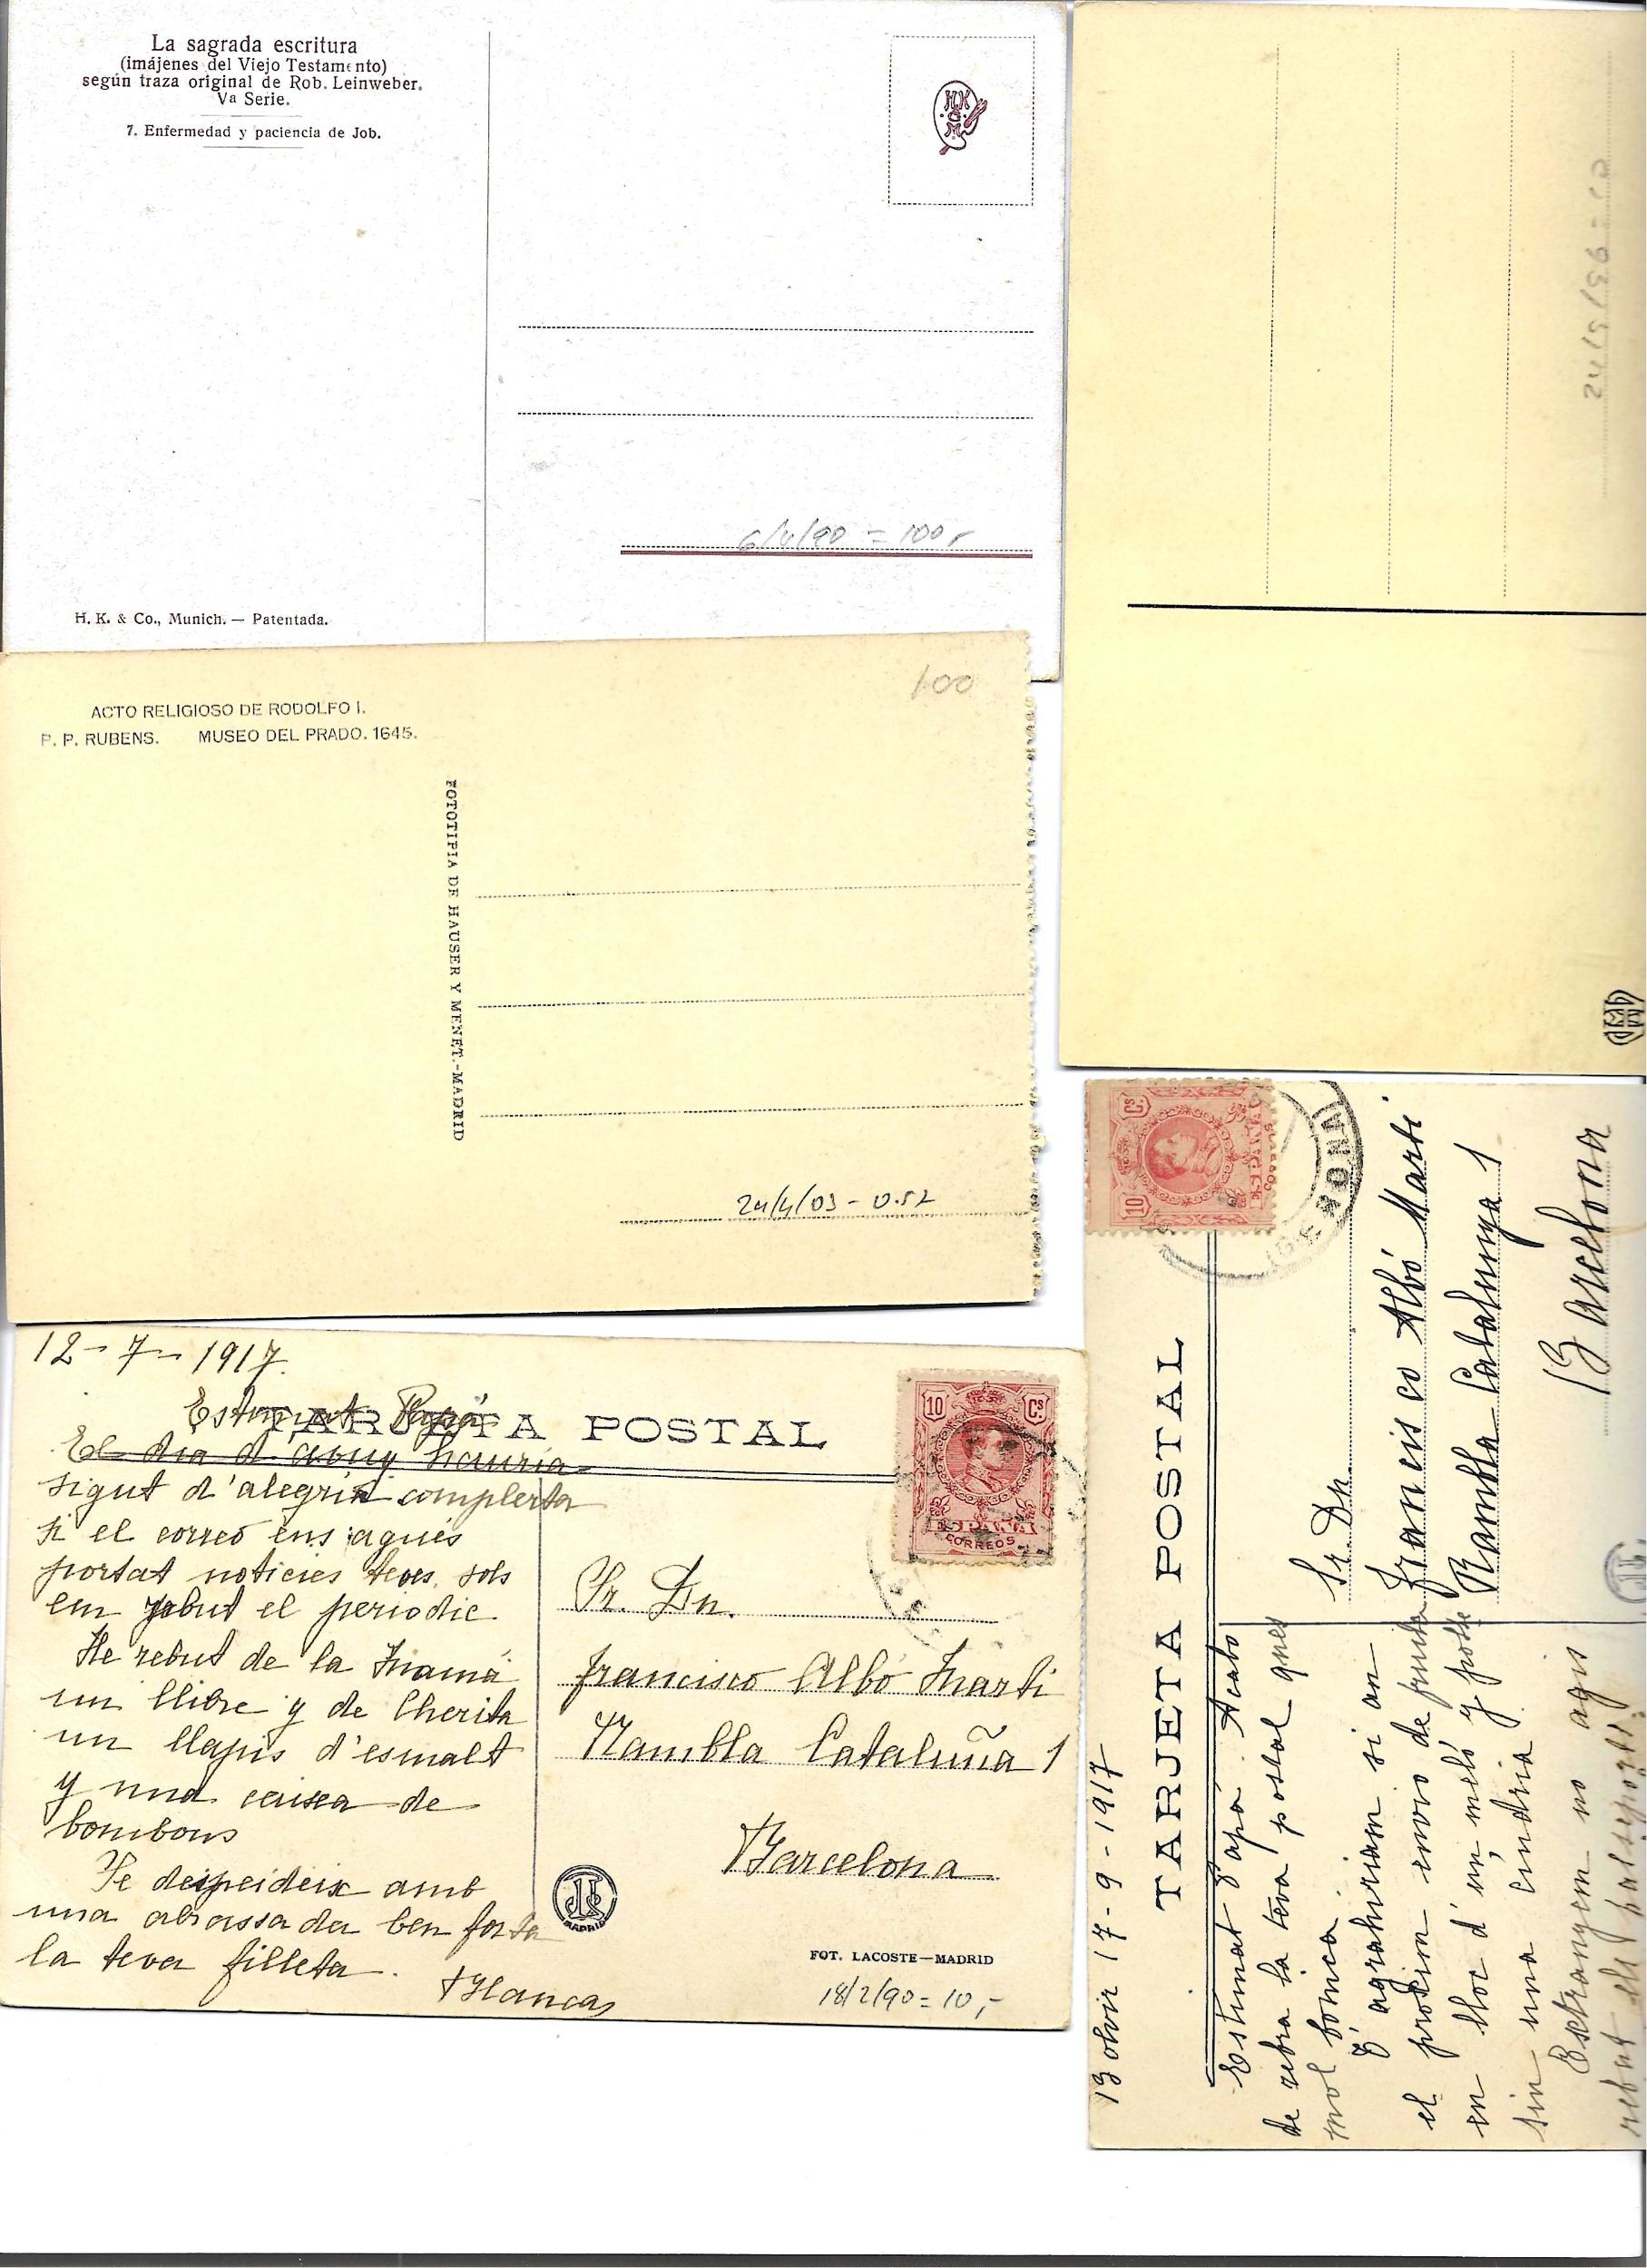 La sagrada escritura
(imájenes del Viejo Testamento)
según traza original de Rob. Leinweber.
Va Serie.
7. Enfermedad y paciencia de Job.
6/4/90 = 100,-
H. K. & Co., Munich. — Patentada.
100
ACTO RELIGIOSO DE RODOLFO I.
P. P. RUBENS. MUSEO DEL PRADO. 1645.
FOTOTIPIA DE HAUSER Y MENET.-MADRID
24/4/03 - 0.52
12-7-1917.
TARJETA POSTAL
Estimat Papá
El dia d'avuy hauria
sigut d'alegria complerta
si el correo ens agués
portat noticies teves, sols
em rebut el periodic
He rebut de la Mamá
un llibre y de Cherita
un llapis d'esmalt
y una caixa de
bombons
Te despeideix amb
una abrassada ben forta
la teva filleta.
Blanca
10 Cs.
ESPAÑA
CORREOS
Sr. Dn.
Francisco Albó Marti
Rambla Cataluña 1
Barcelona
MADRID
FOT. LACOSTE—MADRID
18/2/90 = 10,-
17-9-1917
TARJETA POSTAL
Estimat Papá. Acabo
de rebra la teva postal ques
mol bonica.
T'agrahiriam si an
el proxim envio de fruita
en lloc d'un meló y posse
sin una cindria
Estrangem no agis
rebut els
10 Cs.
ESPAÑA
CORREOS
GERONA
Sr. Dn.
Francisco Albó Marti
Rambla Catalunya 1
Barcelona